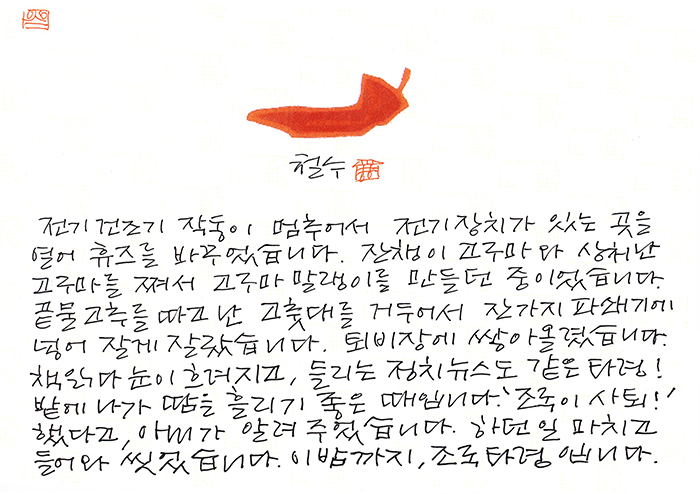 철수
전기건조기 작동이 멈추어서 전기장치가 있는 곳을
열어 휴즈를 바꾸었습니다. 잔챙이 고구마와 상처난
고구마를 쪄서 고구마말랭이를 만들던 중이었습니다.
끝물고추를 따고 난 고춧대를 거두어서 잔가지파쇄기에
넣어 잘게 잘랐습니다. 퇴비장에 쌓아올렸습니다.
책읽다 눈이 흐려지고, 들리는 정치뉴스도 같은 타령!
밭에 나가 땀을 흘리기 좋은 때입니다. '조국이 사퇴!'
했다고, 아내가 알려 주었습니다. 하던 일 마치고
들어와 씻었습니다. 이밤까지, 조국타령입니다.